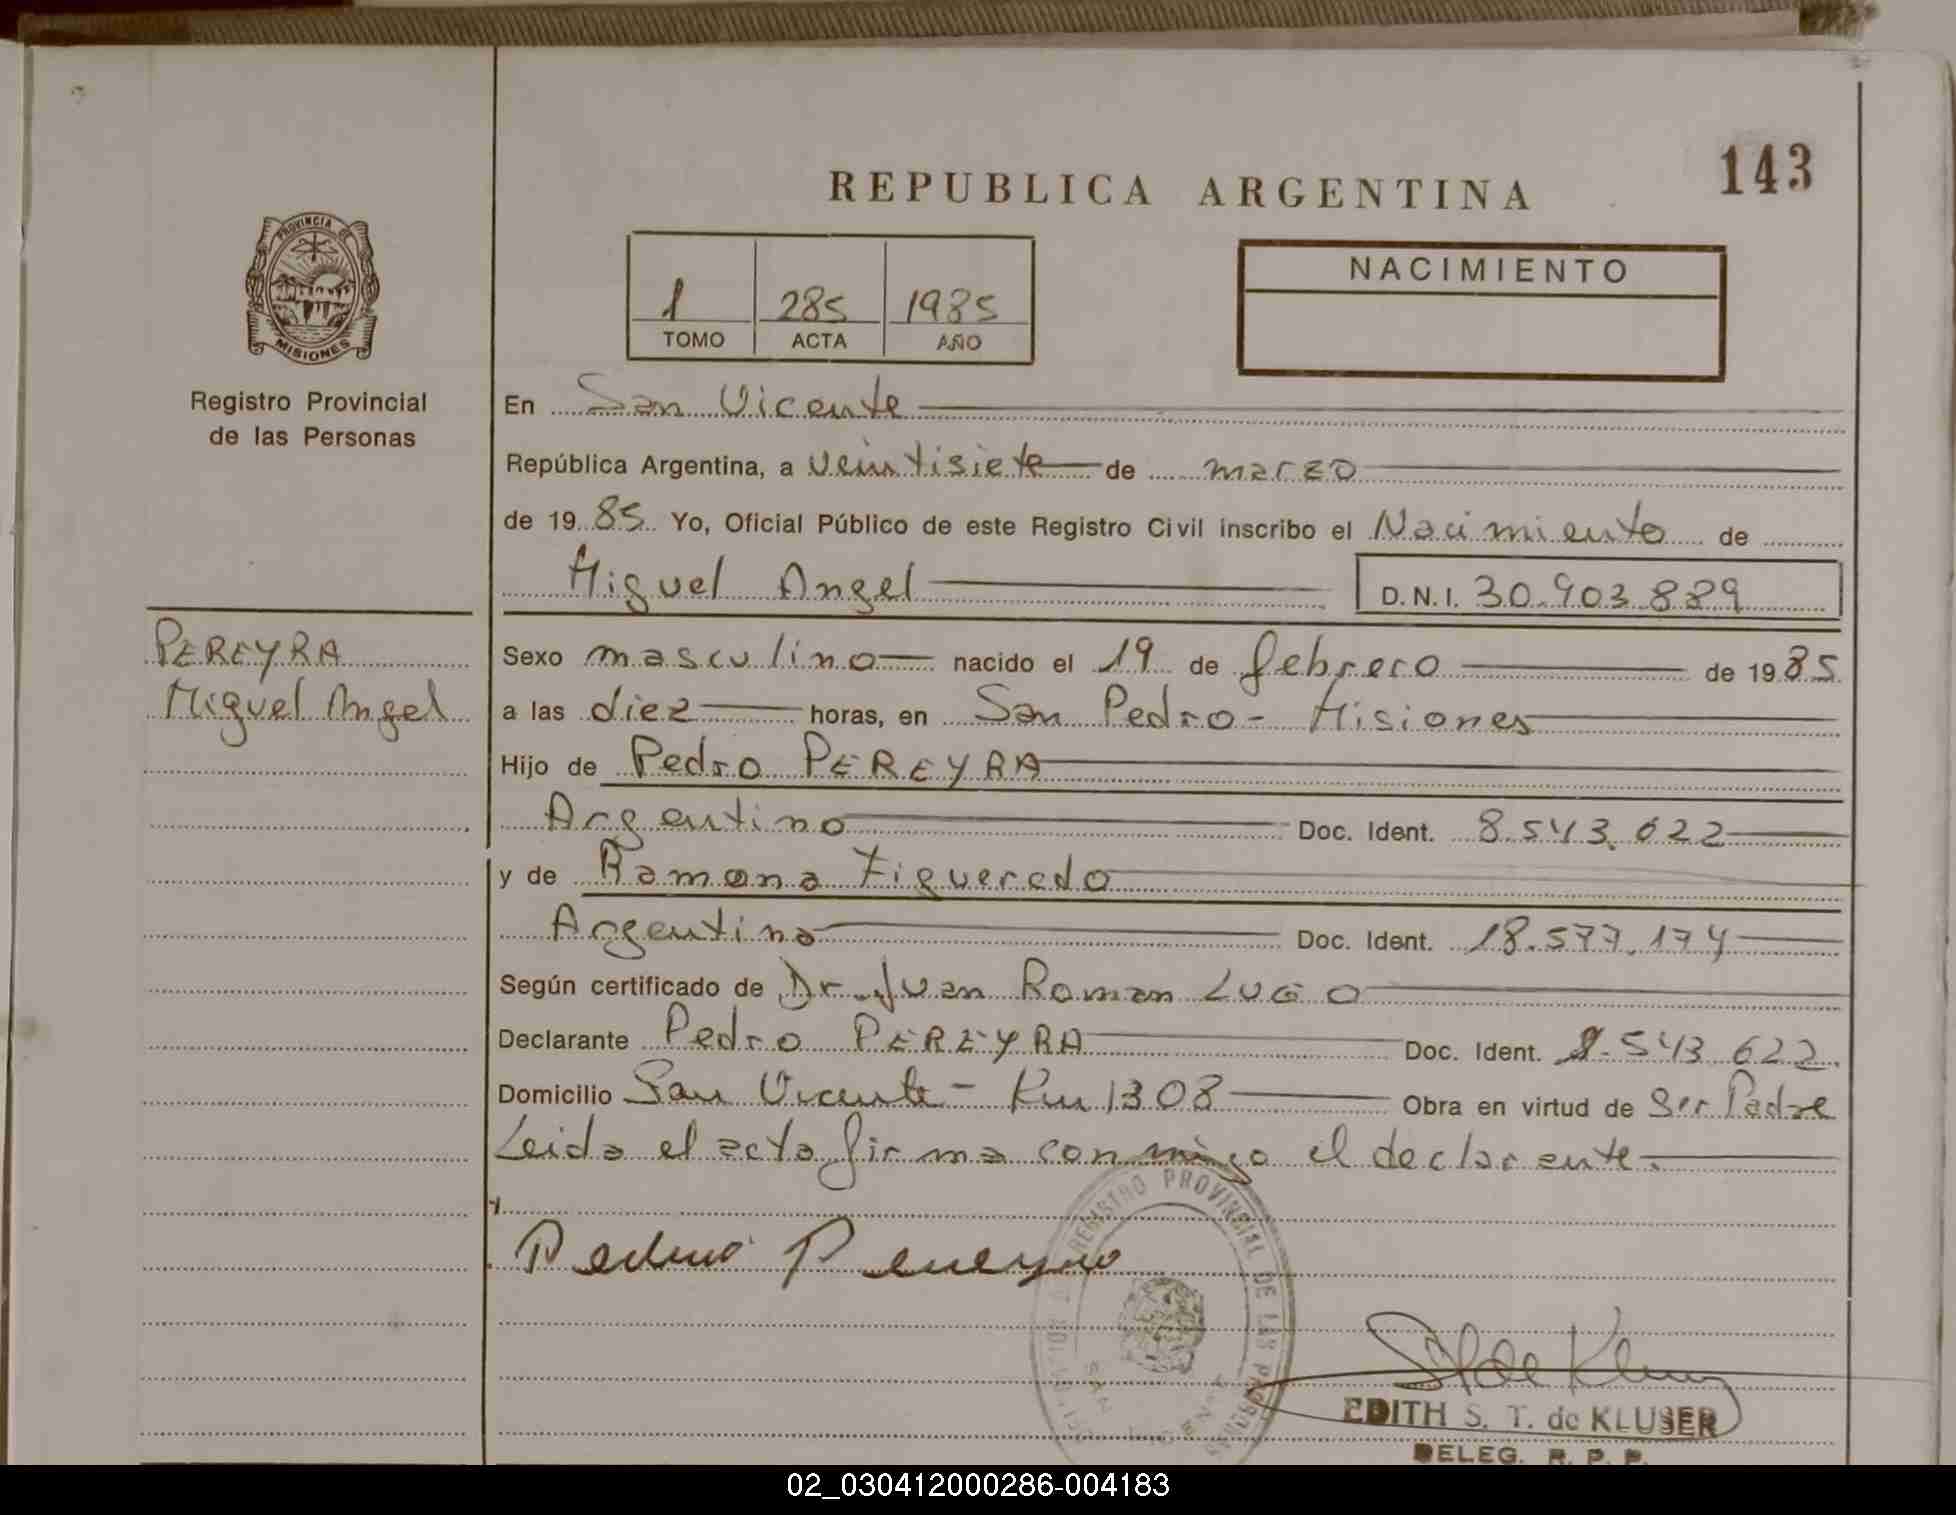 143
REPUBLICA ARGENTINA
PROVINCIA DE
MISIONES
Registro Provincial
de las Personas
1 285 1985
TOMO ACTA AÑO
NACIMIENTO
En San Vicente
República Argentina, a veintisiete de marzo
de 1985 Yo, Oficial Público de este Registro Civil inscribo el Nacimiento de
Miguel Angel D.N.I. 30.903.889
PEREYRA
Miguel Angel
Sexo masculino nacido el 19 de febrero de 1985
a las diez horas, en San Pedro - Misiones
Hijo de Pedro PEREYRA
Argentino Doc. Ident. 8.543.622
y de Ramona Figueredo
Argentina Doc. Ident. 18.577.174
Según certificado de Dr. Juan Roman LUGO
Declarante Pedro PEREYRA Doc. Ident. 8.543.622.
Domicilio San Vicente - Km 1308 Obra en virtud de Ser Padre
Leida el acta firma conmigo el declarente.
Pedro Pereyra
REGISTRO PROVINCIAL DE LAS PERSONAS
SAN
EDITH S. T. de KLUSER
DELEG. R. P. P.
02_030412000286-004183